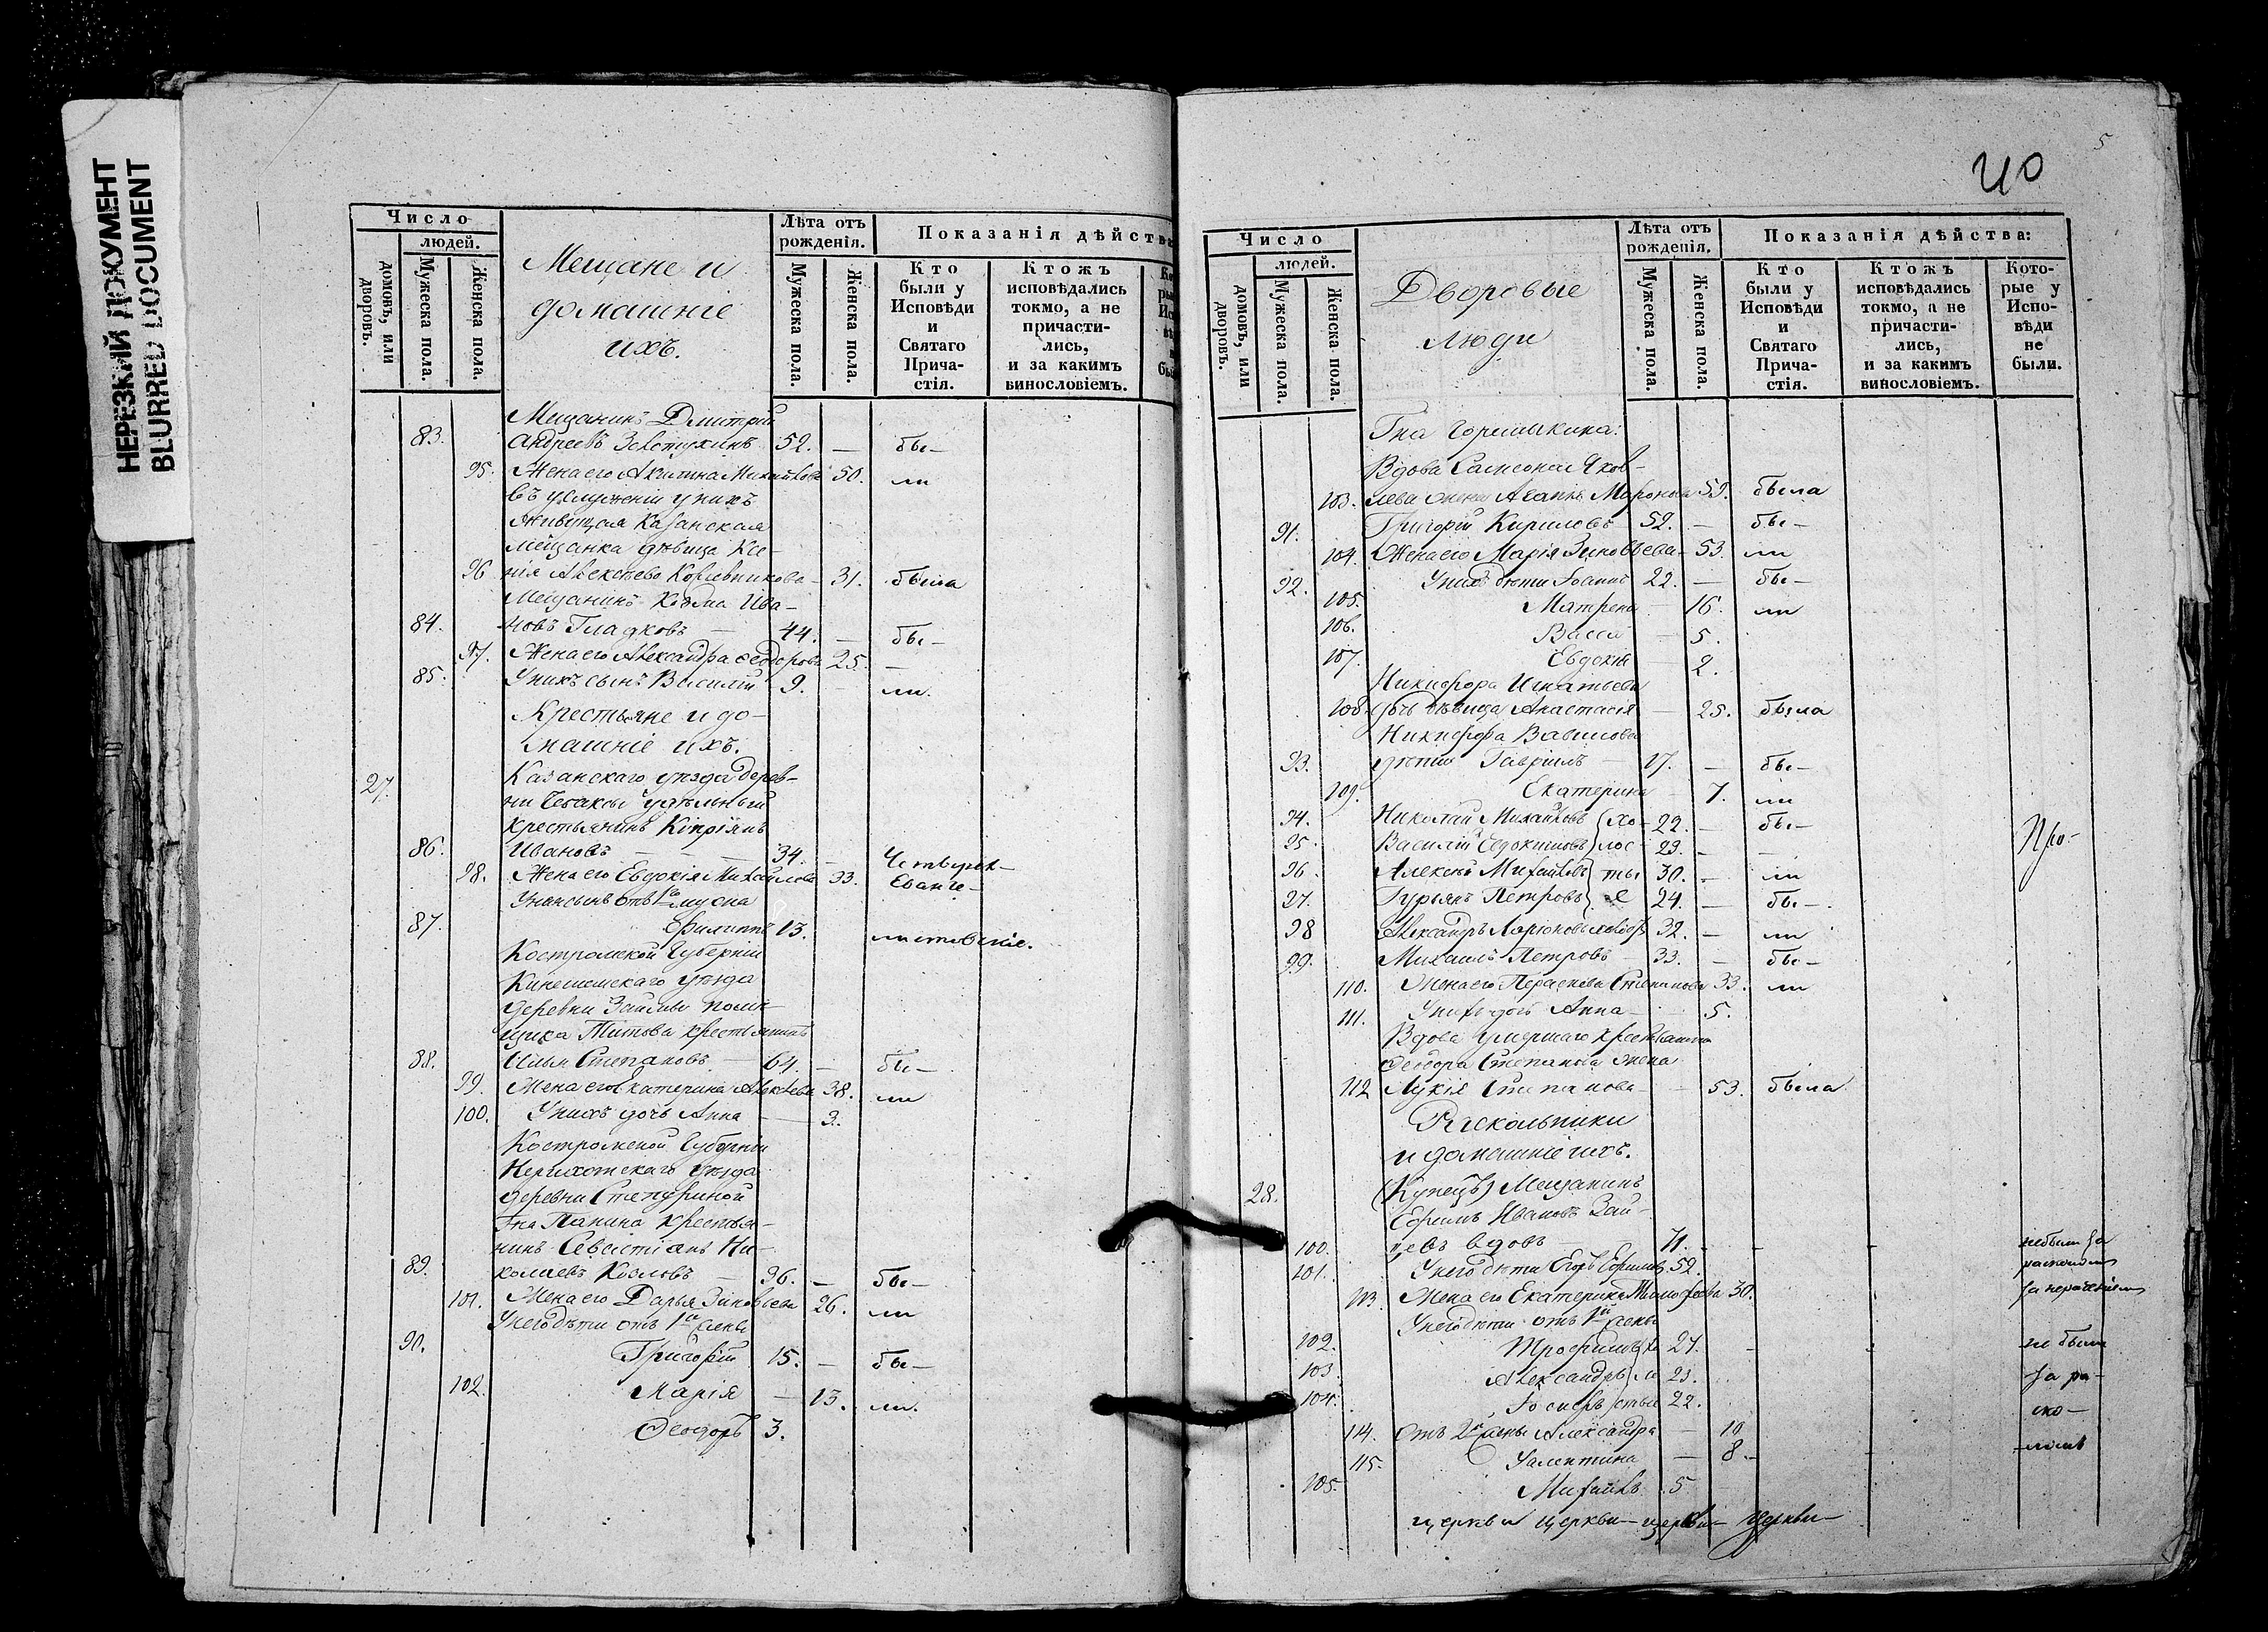 НЕРЕЗКИЙ ДОКУМЕНТ
BLURRED DOCUMENT
Число
людей.
домовъ, или дворовъ.
Мужеска пола.
Женска пола.
Мещане и
домашніе
ихъ.
Лѣта отъ рожденія.
Мужеска пола.
Женска пола.
Показанія дѣйств
Кто были у Исповѣди и Святаго Прича-стія.
Ктожъ исповѣдались токмо, а не причасти-лись, и за какимъ винословіемъ.
Мещанинъ Дмитрій
83. Андреевъ 52. — бы—
95. Жена его Акилина Михайлова 50. ли
въ услуженіи у нихъ
живущая Казанская
мещанка дѣвица Ксе-
96 нія Алексѣева Кожевникова — 31. была
Мещанинъ Козма Ива-
84. новъ Гладковъ — 44. — бы—
97. Жена его Александра Ѳедорова 25. —
85. У нихъ сынъ Василій 9. — ли.
Крестьяне и до-
машніе ихъ.
27. Казанскаго уѣзда дерев-
ни Чебаксы удѣльный
крестьянинъ Кипріянъ
86. Ивановъ — — — 34. — Четверо-
98. Жена его Евдокія Михайлова 33. Еванге-
У нихъ сынъ отъ 1го мужа
87. Филиппъ 13. листовскіе.
Костромской Губерніи
Кинешемскаго уѣзда
деревни помѣ-
щика Титова крестьянинъ
88. Илья Степановъ — 64. — бы—
99. Жена его Екатерина Алексѣева 38. ли
100. У нихъ дочь Анна — 3.
Костромской Губерніи
Нерехотскаго уѣзда
деревни
Гна Панина крестья-
нинъ Севастіанъ Ни-
89. колаевъ Козловъ — 36. — бы—
101. Жена его Дарья Зиновьева 26. ли
У него дѣти отъ 1й жены
90. Григорій 15. — бы—
102. Марія — 13. ли.
Ѳеодоръ 3.
5
40
Число
людей.
домовъ, или дворовъ.
Мужеска пола.
Женска пола.
Дворовые
люди
Лѣта отъ рожденія.
Мужеска пола.
Женска пола.
Показанія дѣйства:
Кто были у Исповѣди и Святаго Прича-стія.
Ктожъ исповѣдались токмо, а не причасти-лись, и за какимъ винословіемъ.
Кото-рые у Испо-вѣди не были.
Гна Горемыкина:
Вдова Самсона Яков-
103. лева жена Агапія Миронова 59. была
91. Григорій Кириловъ 52. — бы—
104. Жена его Марія Зиновьева 53. ли
92. У нихъ дѣти Іоаннъ 22. — бы—
105. Матрена — 16. ли
106. Васса — 5.
107. Евдокія — 2.
Никифора Игнатьева
108. дочь дѣвица Анастасія — 25. была
Никифора Вавилова
93. дѣти Гавріилъ — 17. — бы—
109. Екатерина — 7. ли
94. Николай Михайловъ хо- 22. — бы—
95. Василій Евдокимовъ лос- 23. — — Про-
96. Алексѣй Михайловъ ты 30. — ли
97. Гурьянъ Петровъ е 24. — бы—
98 Александръ Ларіоновъ 32. — ли
99. Михаилъ Петровъ 33. — бы—
110. Жена его Параскева Степанова 33. ли
111. У нихъ дочь Анна — 5.
Вдова умершаго крестьянина
Ѳеодора Степанова жена
112 Лукія Степанова — 53. была
Раскольники
и домашніе ихъ.
28. (Купецъ) Мещанинъ
Ефремъ Ивановъ Зай-
100. цевъ вдовъ — 71. — не были за
101. У него дѣти Егоръ Ефремовъ 52. расколомъ
113. Жена его Екатерина Тимофеева 30. за нераченіемъ
У него дѣти отъ 1й жены
102. Трофимъ хо 27. — не были
103. Александръ ло 23. за ра-
104. Іосифъ стые 22. ско-
114. Отъ 2й жены Александра — 10 ломъ
115. Валентина — 8.
105. Михайлъ 5
церкви церкви церкви церкви